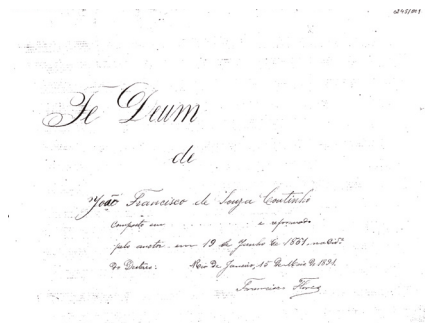 Te Deum
de
João Francisco de Souza Coutinho
Composto em . . . . . . . . e reformado
pelo autor em 19 de Junho de 1851, na Cid.e
do Desterro: Rio de Janeiro, 15 de Maio de 1891.
Francisco